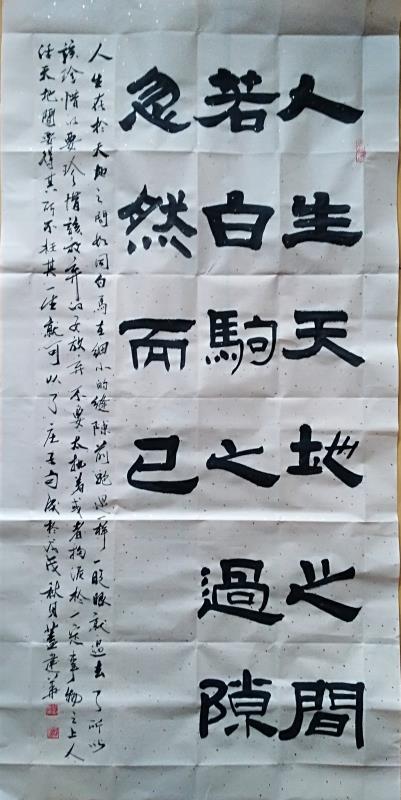 人生天地之間
若白駒之過隙
忽然而已
人生在於天地之間如同白馬在細小的縫隙前跑過樣一眨眼就過去了所以
該珍惜以要珍惜該放弃以要放弃不要太執着或者拘泥於一定事物之上人
活天地間要得其所不枉其一生就可以了庄子句戊戌秋月蓋建華